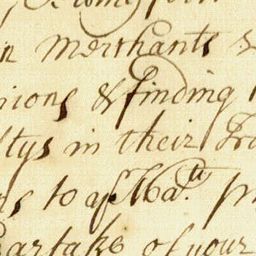 n Merchants &
nions & finding
ltys in their Tra
s to
partake of your